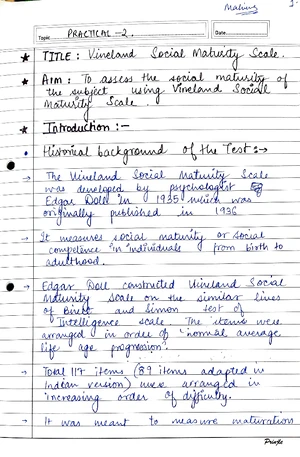 Making
Topic PRACTICAL - 2. Date
★ TITLE : Vineland Social Maturity Scale.
★ Aim : To assess the social maturity of
the subject using Vineland Social
Maturity Scale.
★ Introduction :-
• Historical background of the Test :→
→ The Vineland Social Maturity Scale
was developed by psychologist
Edgar Doll in 1935 which was
originally published in 1936
→ It measures social maturity or social
competence in individuals from birth to
adulthood.
→ Edgar Doll constructed Vineland Social
Maturity Scale on the similar lines
of Binet and Simon test of
Intelligence scale. The items were
arranged in order of "normal average
life age progression".
→ Total 117 items (89 items adapted in
Indian version) were arranged in
increasing order of difficulty.
→ It was meant to measure maturation
Pringle